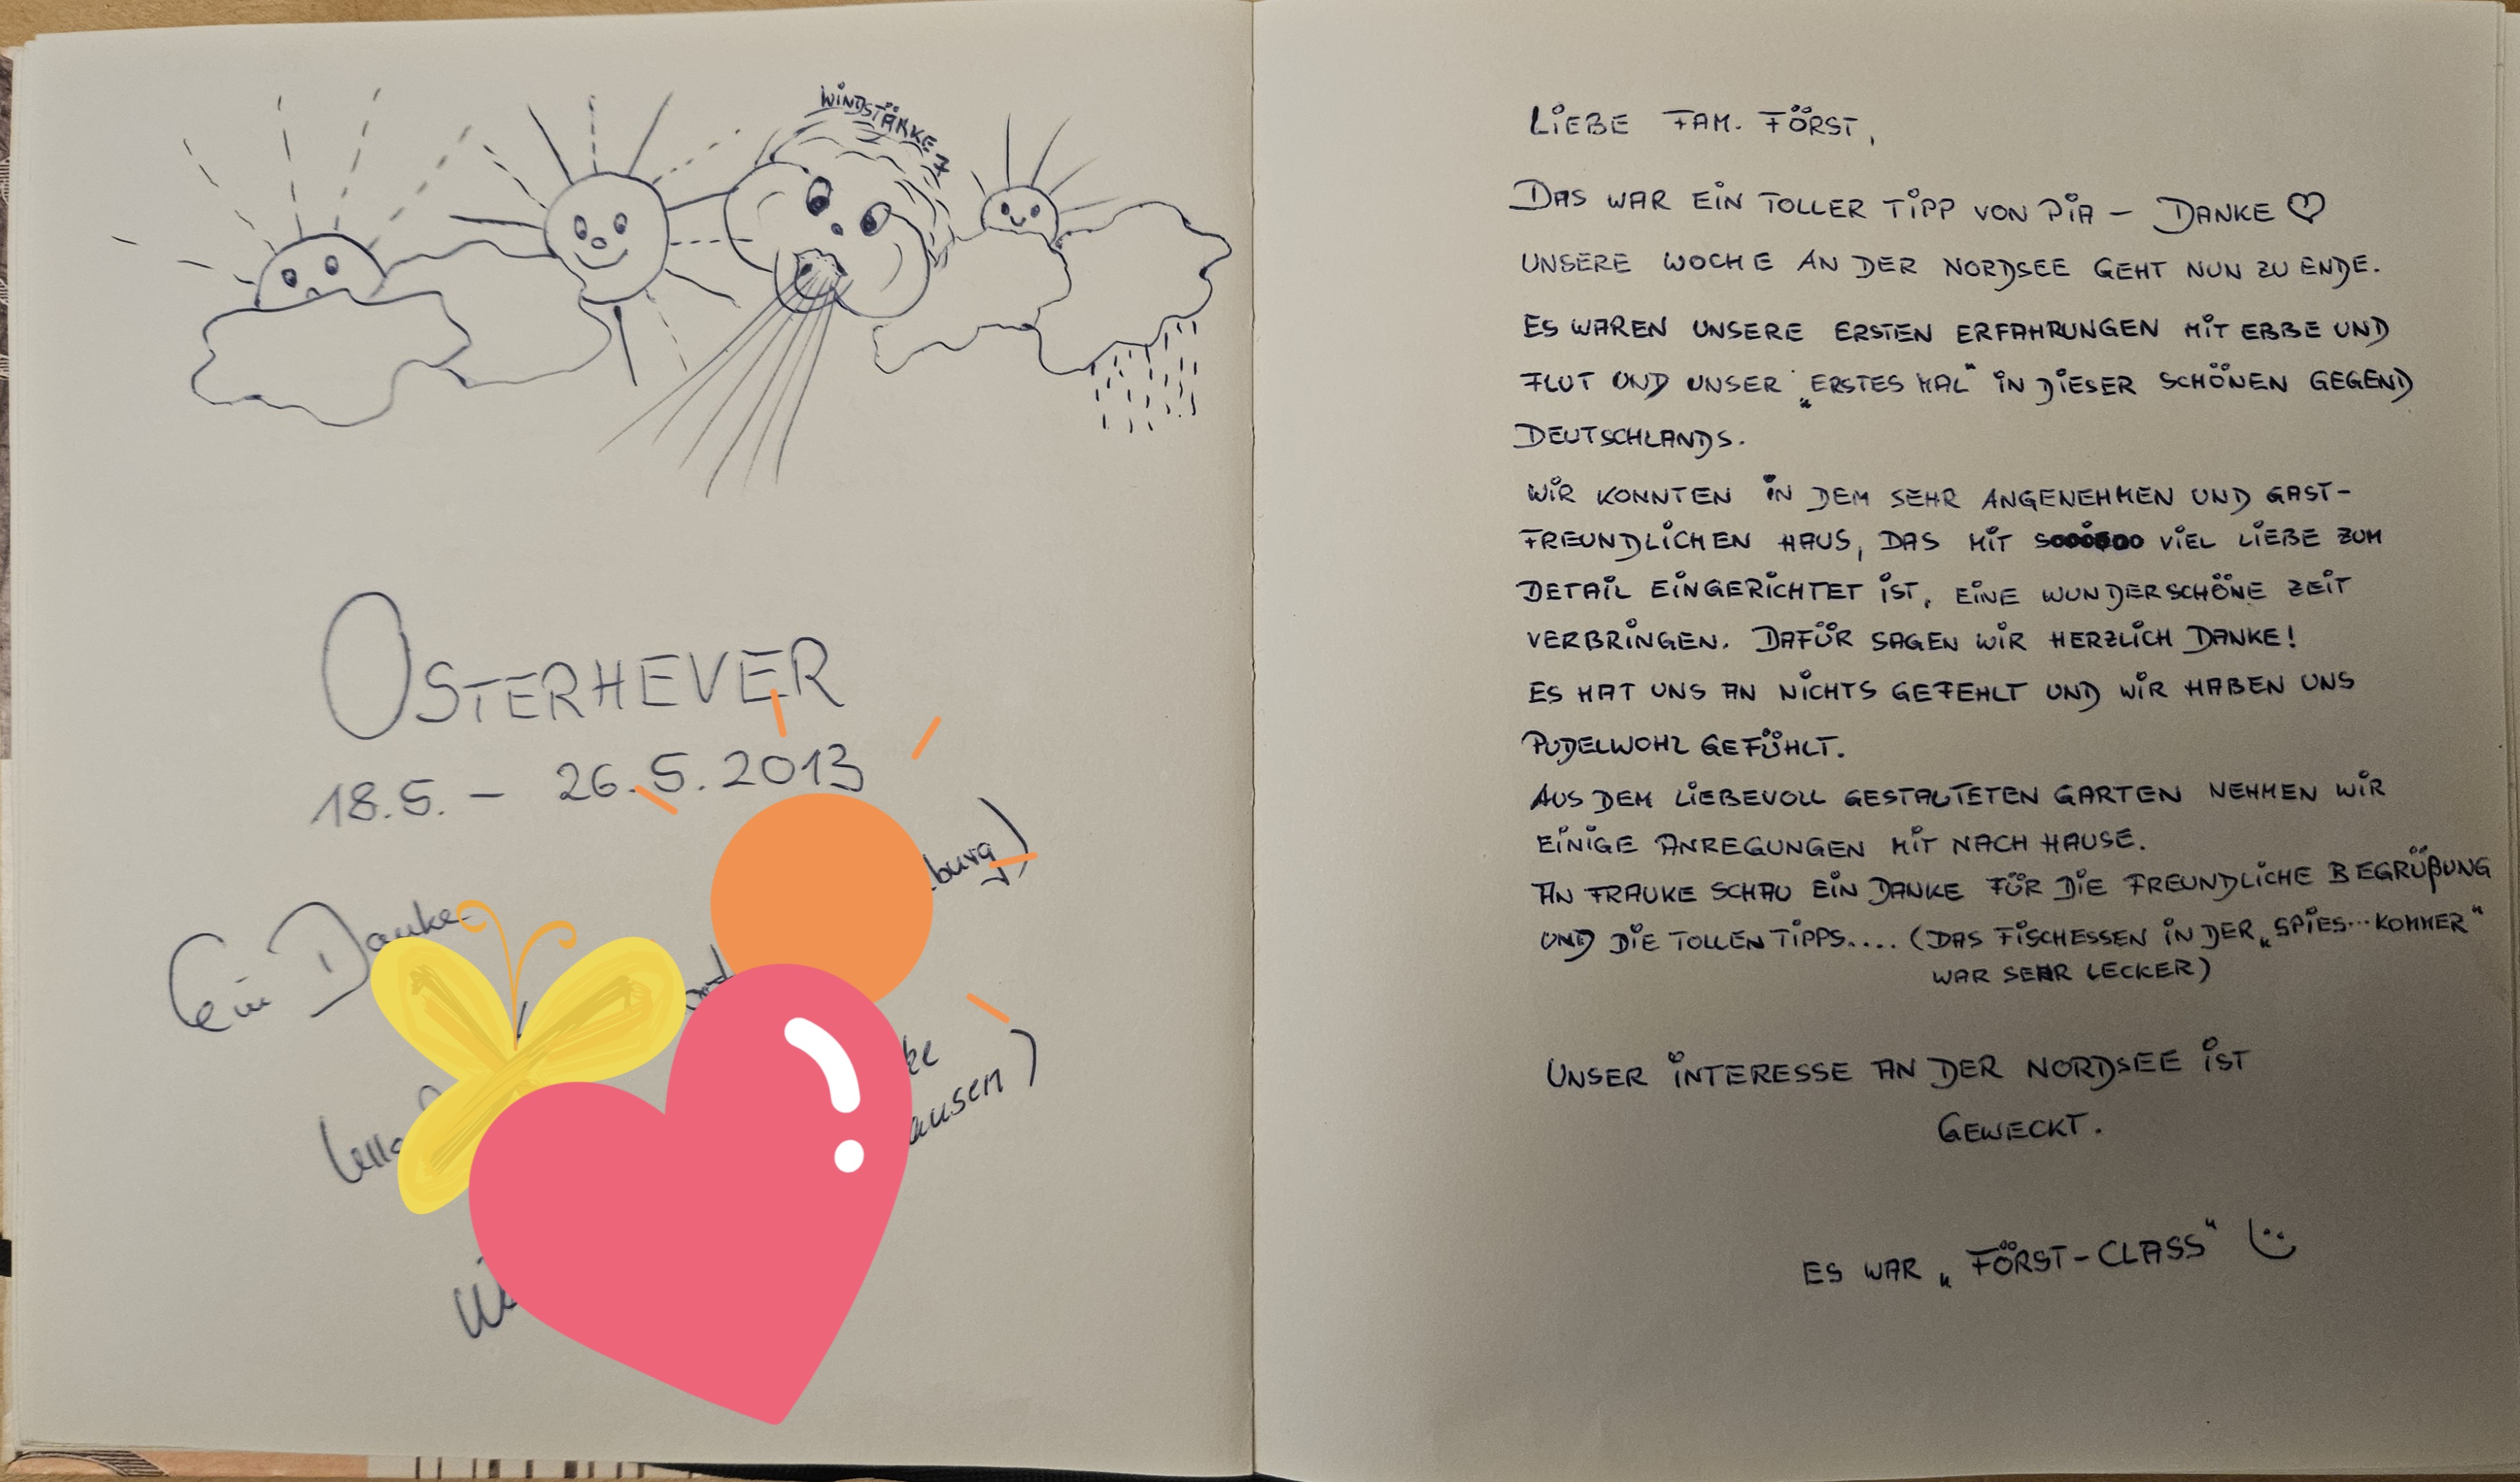 WINDSTÄRKE 7
OSTERHEVER
18.5. – 26.5.2013
Ein Danke
burg)
ausen)
LIEBE FAM. FÖRST,
DAS WAR EIN TOLLER TIPP VON PIA – DANKE ♡
UNSERE WOCHE AN DER NORDSEE GEHT NUN ZU ENDE.
ES WAREN UNSERE ERSTEN ERFAHRUNGEN MIT EBBE UND
FLUT UND UNSER „ERSTES MAL" IN DIESER SCHÖNEN GEGEND
DEUTSCHLANDS.
WIR KONNTEN IN DEM SEHR ANGENEHMEN UND GAST-
FREUNDLICHEN HAUS, DAS MIT SOOOOOO VIEL LIEBE ZUM
DETAIL EINGERICHTET IST, EINE WUNDERSCHÖNE ZEIT
VERBRINGEN. DAFÜR SAGEN WIR HERZLICH DANKE!
ES HAT UNS AN NICHTS GEFEHLT UND WIR HABEN UNS
PUDELWOHL GEFÜHLT.
AUS DEM LIEBEVOLL GESTALTETEN GARTEN NEHMEN WIR
EINIGE ANREGUNGEN MIT NACH HAUSE.
AN FRAUKE SCHAU EIN DANKE FÜR DIE FREUNDLICHE BEGRÜßUNG
UND DIE TOLLEN TIPPS.... (DAS FISCHESSEN IN DER „SPIES...KOMMER"
WAR SEHR LECKER)
UNSER INTERESSE AN DER NORDSEE IST
GEWECKT.
ES WAR „FÖRST-CLASS"